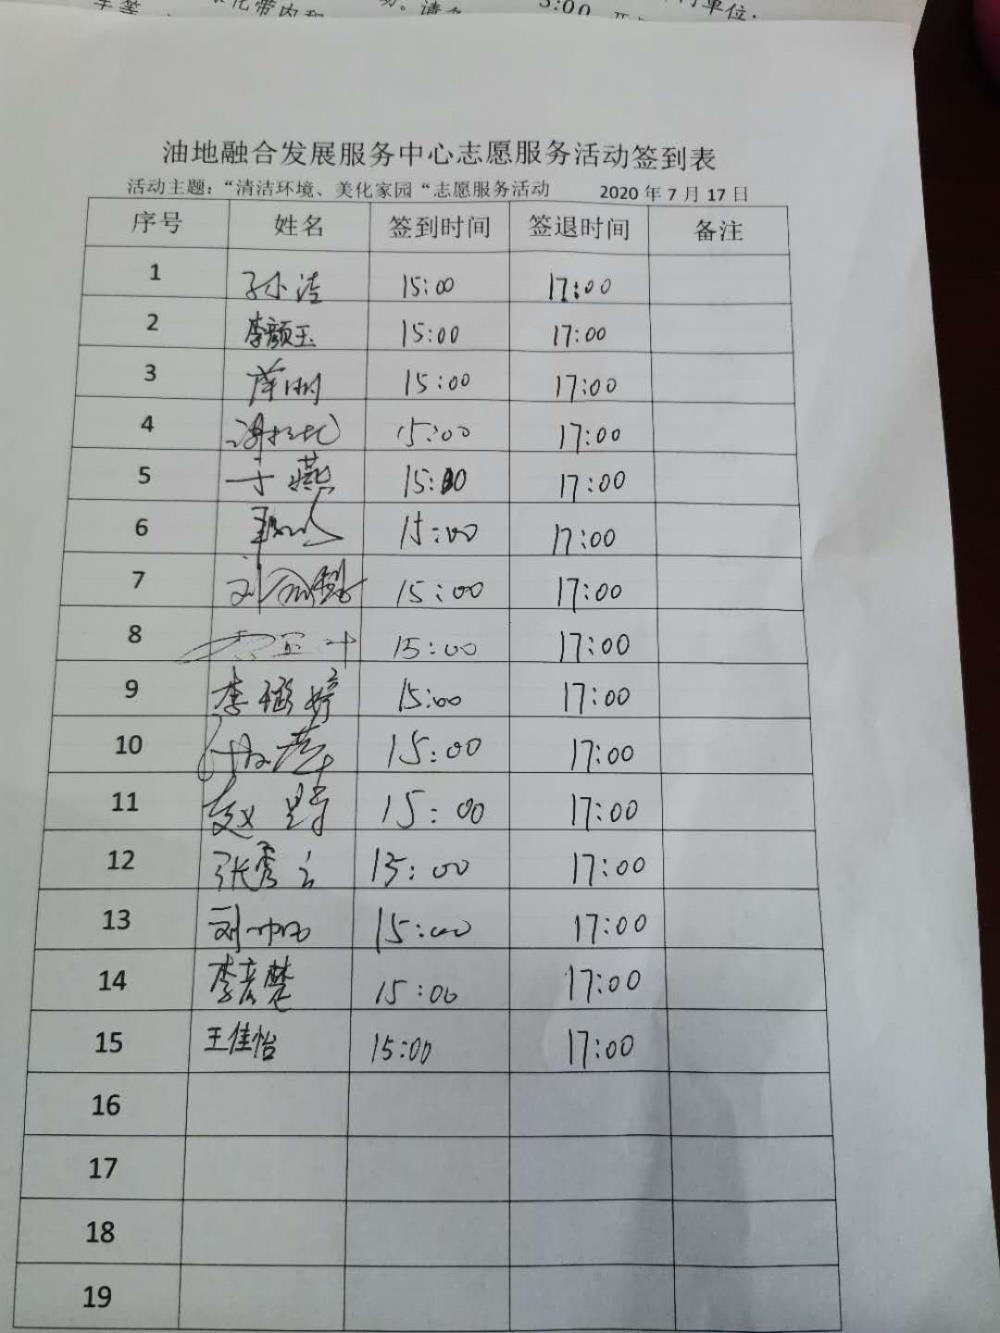 油地融合发展服务中心志愿服务活动签到表
活动主题：“清洁环境、美化家园“志愿服务活动 2020年7月17日
序号 姓名 签到时间 签退时间 备注
1 孙小洁 15:00 17:00
2 李颜玉 15:00 17:00
3 15:00 17:00
4 15:00 17:00
5 于燕 15:00 17:00
6 15:00 17:00
7 刘 15:00 17:00
8 15:00 17:00
9 李 婷 15:00 17:00
10 15:00 17:00
11 赵 15:00 17:00
12 张秀云 15:00 17:00
13 刘 15:00 17:00
14 李彦楚 15:00 17:00
15 王佳怡 15:00 17:00
16
17
18
19